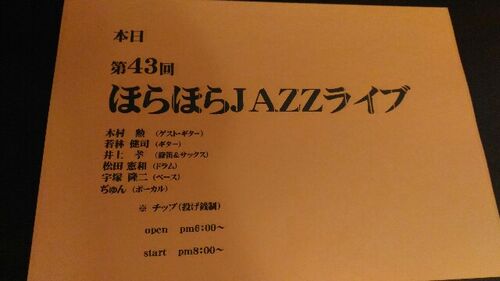 本日
第43回
ほらほらJAZZライブ
木村 勲 (ゲスト・ギター)
若林 健司 (ギター)
井上 孝 (篠笛&サックス)
松田 憲和 (ドラム)
宇塚 隆二 (ベース)
ぢゅん (ボーカル)
※ チップ(投げ銭制)
open pm6:00~
start pm8:00~